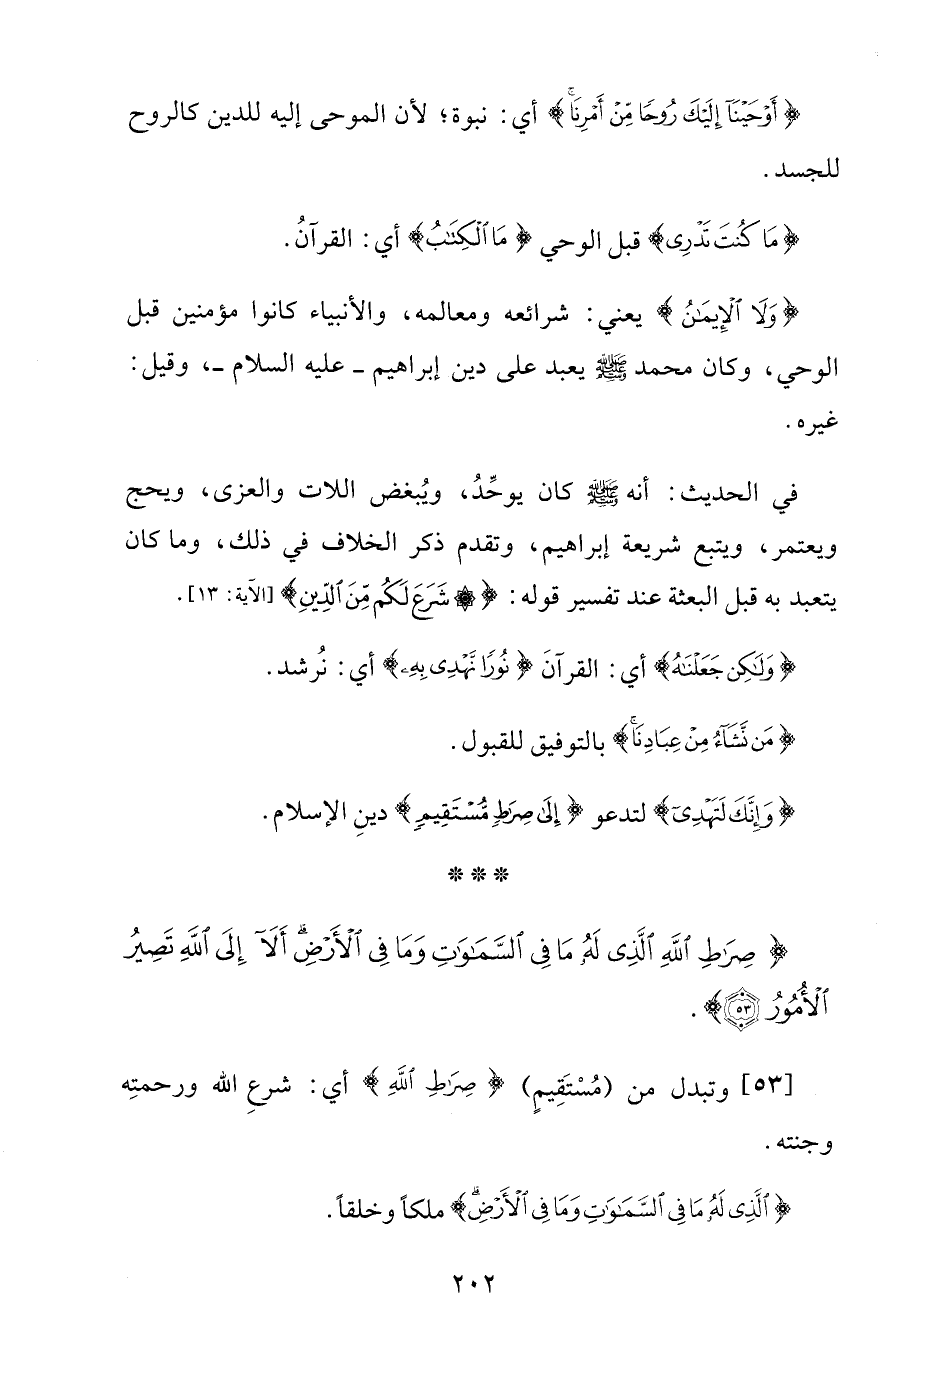 ﴿أَوْحَيْنَآ إِلَيْكَ رُوحًا مِّنْ أَمْرِنَا ۚ﴾ أي: نبوة؛ لأن الموحى إليه للدين كالروح
للجسد.
﴿مَا كُنتَ تَدْرِى﴾ قبل الوحي ﴿مَا ٱلْكِتَٰبُ﴾ أي: القرآنُ.
﴿وَلَا ٱلْإِيمَٰنُ﴾ يعني: شرائعه ومعالمه، والأنبياء كانوا مؤمنين قبل
الوحي، وكان محمد ﷺ يعبد على دين إبراهيم ـ عليه السلام ـ، وقيل:
غيره.
في الحديث: أنه ﷺ كان يوحِّدُ، ويُبغض اللات والعزى، ويحج
ويعتمر، ويتبع شريعة إبراهيم، وتقدم ذكر الخلاف في ذلك، وما كان
يتعبد به قبل البعثة عند تفسير قوله: ﴿۞ شَرَعَ لَكُم مِّنَ ٱلدِّينِ﴾ [الآية: ١٣].
﴿وَلَٰكِن جَعَلْنَٰهُ﴾ أي: القرآنَ ﴿نُورًا نَّهْدِى بِهِۦ﴾ أي: نُرشد.
﴿مَن نَّشَآءُ مِنْ عِبَادِنَا ۚ﴾ بالتوفيق للقبول.
﴿وَإِنَّكَ لَتَهْدِىٓ﴾ لتدعو ﴿إِلَىٰ صِرَٰطٍ مُّسْتَقِيمٍ﴾ دينِ الإسلام.
* * *
﴿صِرَٰطِ ٱللَّهِ ٱلَّذِى لَهُۥ مَا فِى ٱلسَّمَٰوَٰتِ وَمَا فِى ٱلْأَرْضِ ۗ أَلَآ إِلَى ٱللَّهِ تَصِيرُ
ٱلْأُمُورُ ۝٥٣﴾.
[٥٣] وتبدل من (مُسْتَقِيمٍ) ﴿صِرَٰطِ ٱللَّهِ﴾ أي: شرعِ الله ورحمتِه
وجنته.
﴿ٱلَّذِى لَهُۥ مَا فِى ٱلسَّمَٰوَٰتِ وَمَا فِى ٱلْأَرْضِ ۗ﴾ ملكاً وخلقاً.
٢٠٢